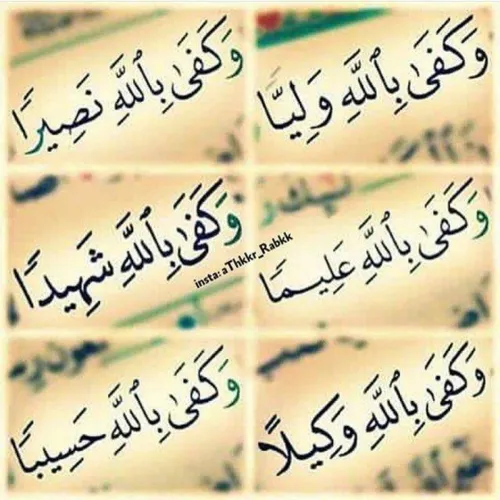 وَكَفَىٰ بِٱللَّهِ وَلِيًّا
وَكَفَىٰ بِٱللَّهِ نَصِيرًا
وَكَفَىٰ بِٱللَّهِ عَلِيمًا
وَكَفَىٰ بِٱللَّهِ شَهِيدًا
insta: aThkkr_Rabkk
وَكَفَىٰ بِٱللَّهِ وَكِيلًا
وَكَفَىٰ بِٱللَّهِ حَسِيبًا